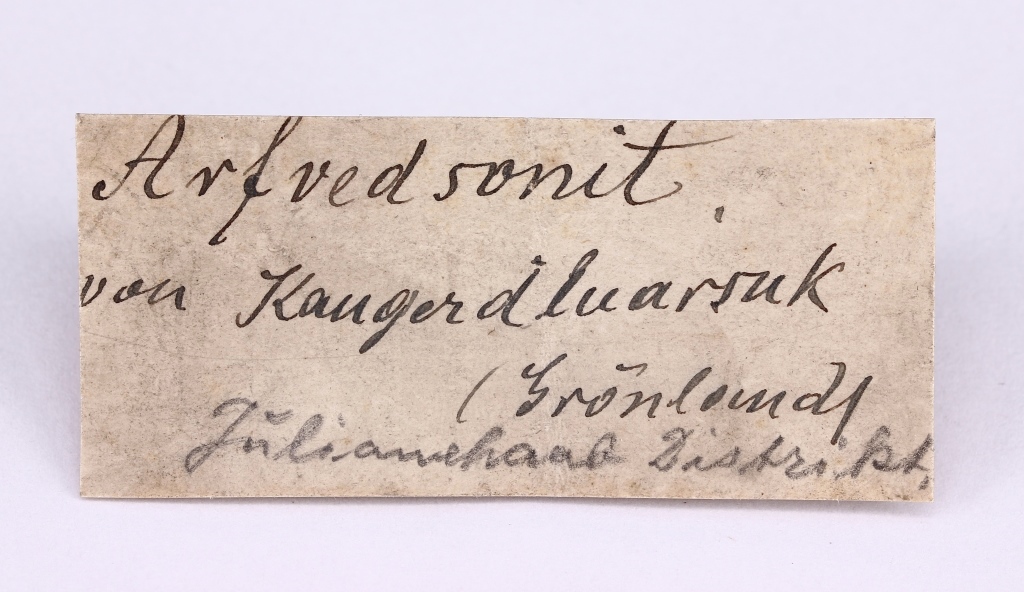 Arfvedsonit.
von Kangerdluarsuk
(Grönland)
Julianehaab Distrikt.